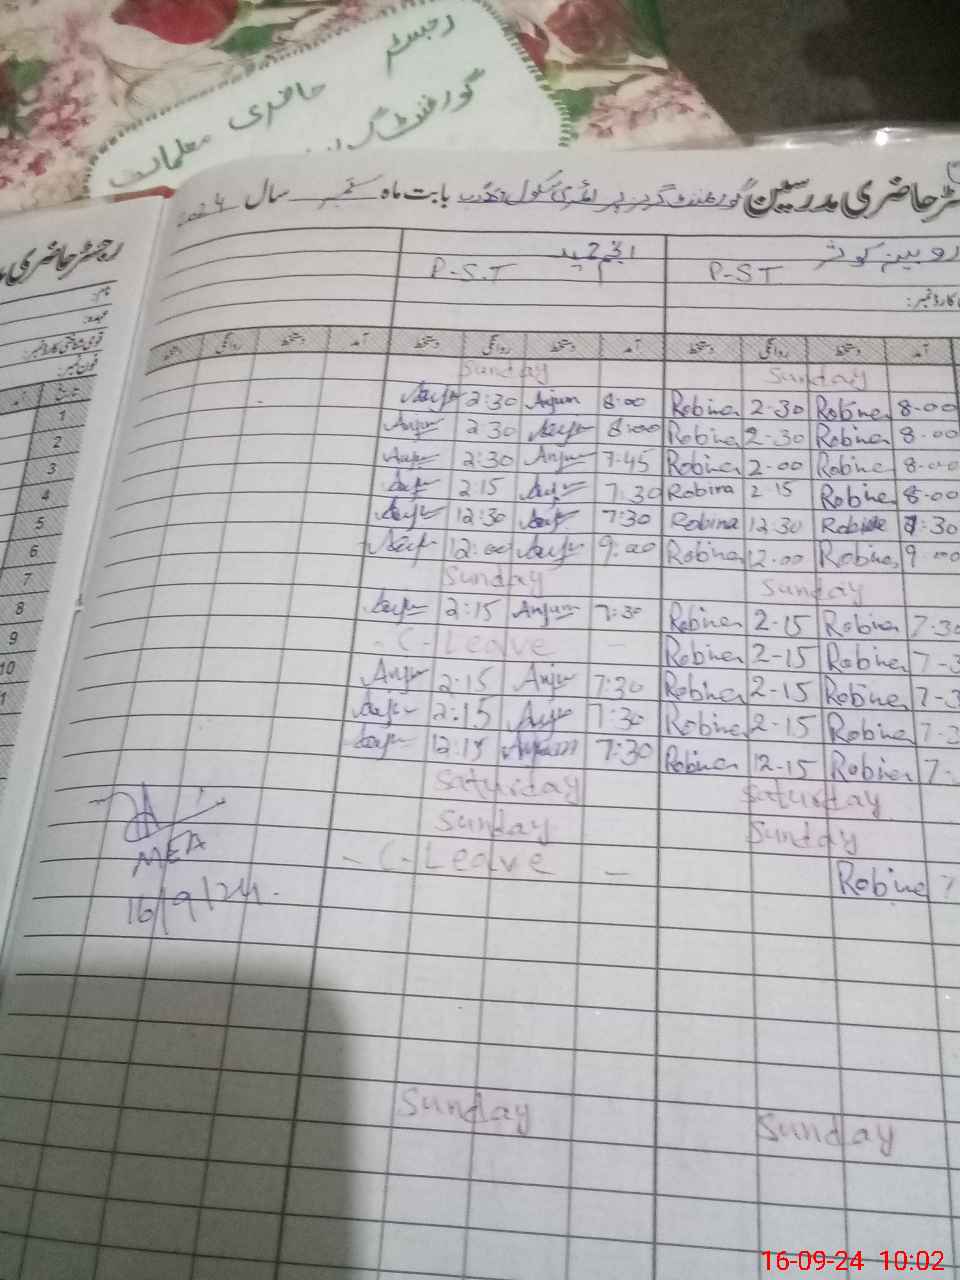 رجسٹر
حاضری معلمات
گورنمنٹ
رجسٹر حاضری مدرسین گورنمنٹ گرلز پرائمری سکول بابت ماہ ستمبر سال 2024
رجسٹر حاضری
روبینہ کوثر
P-S.T P-ST
کارڈ نمبر:
نام:
عہدہ:
قومی شناختی کارڈ نمبر:
فون نمبر:
آمد دستخط روانگی دستخط آمد دستخط روانگی دستخط آمد دستخط روانگی دستخط
تاریخ
Sunday Sunday
2:30 Anjum 8:00 Robina 2-30 Robina 8-00
Anjum 2:30 8:00 Robina 2-30 Robina 8-00
2:30 Anjum 7:45 Robina 2-00 Robina 8-00
2:15 7:30 Robina 2-15 Robina 8-00
12:30 7:30 Robina 12-30 Robina :30
12:00 9:00 Robina 12-00 Robina 9-00
Sunday Sunday
2:15 Anjum 7:30 Robina 2-15 Robina 7-30
- C-Leave - Robina 2-15 Robina 7-3
Anjum 2:15 Anjum 7:30 Robina 2-15 Robina 7-3
2:15 7:30 Robina 2-15 Robina 7-3
12:15 Anjum 7:30 Robina 12-15 Robina 7-
Saturday Saturday
Sunday Sunday
- C-Leave - Robina 7
MEA
16/9/24.
Sunday Sunday
1
2
3
4
5
6
7
8
9
10
1
16-09-24 10:02